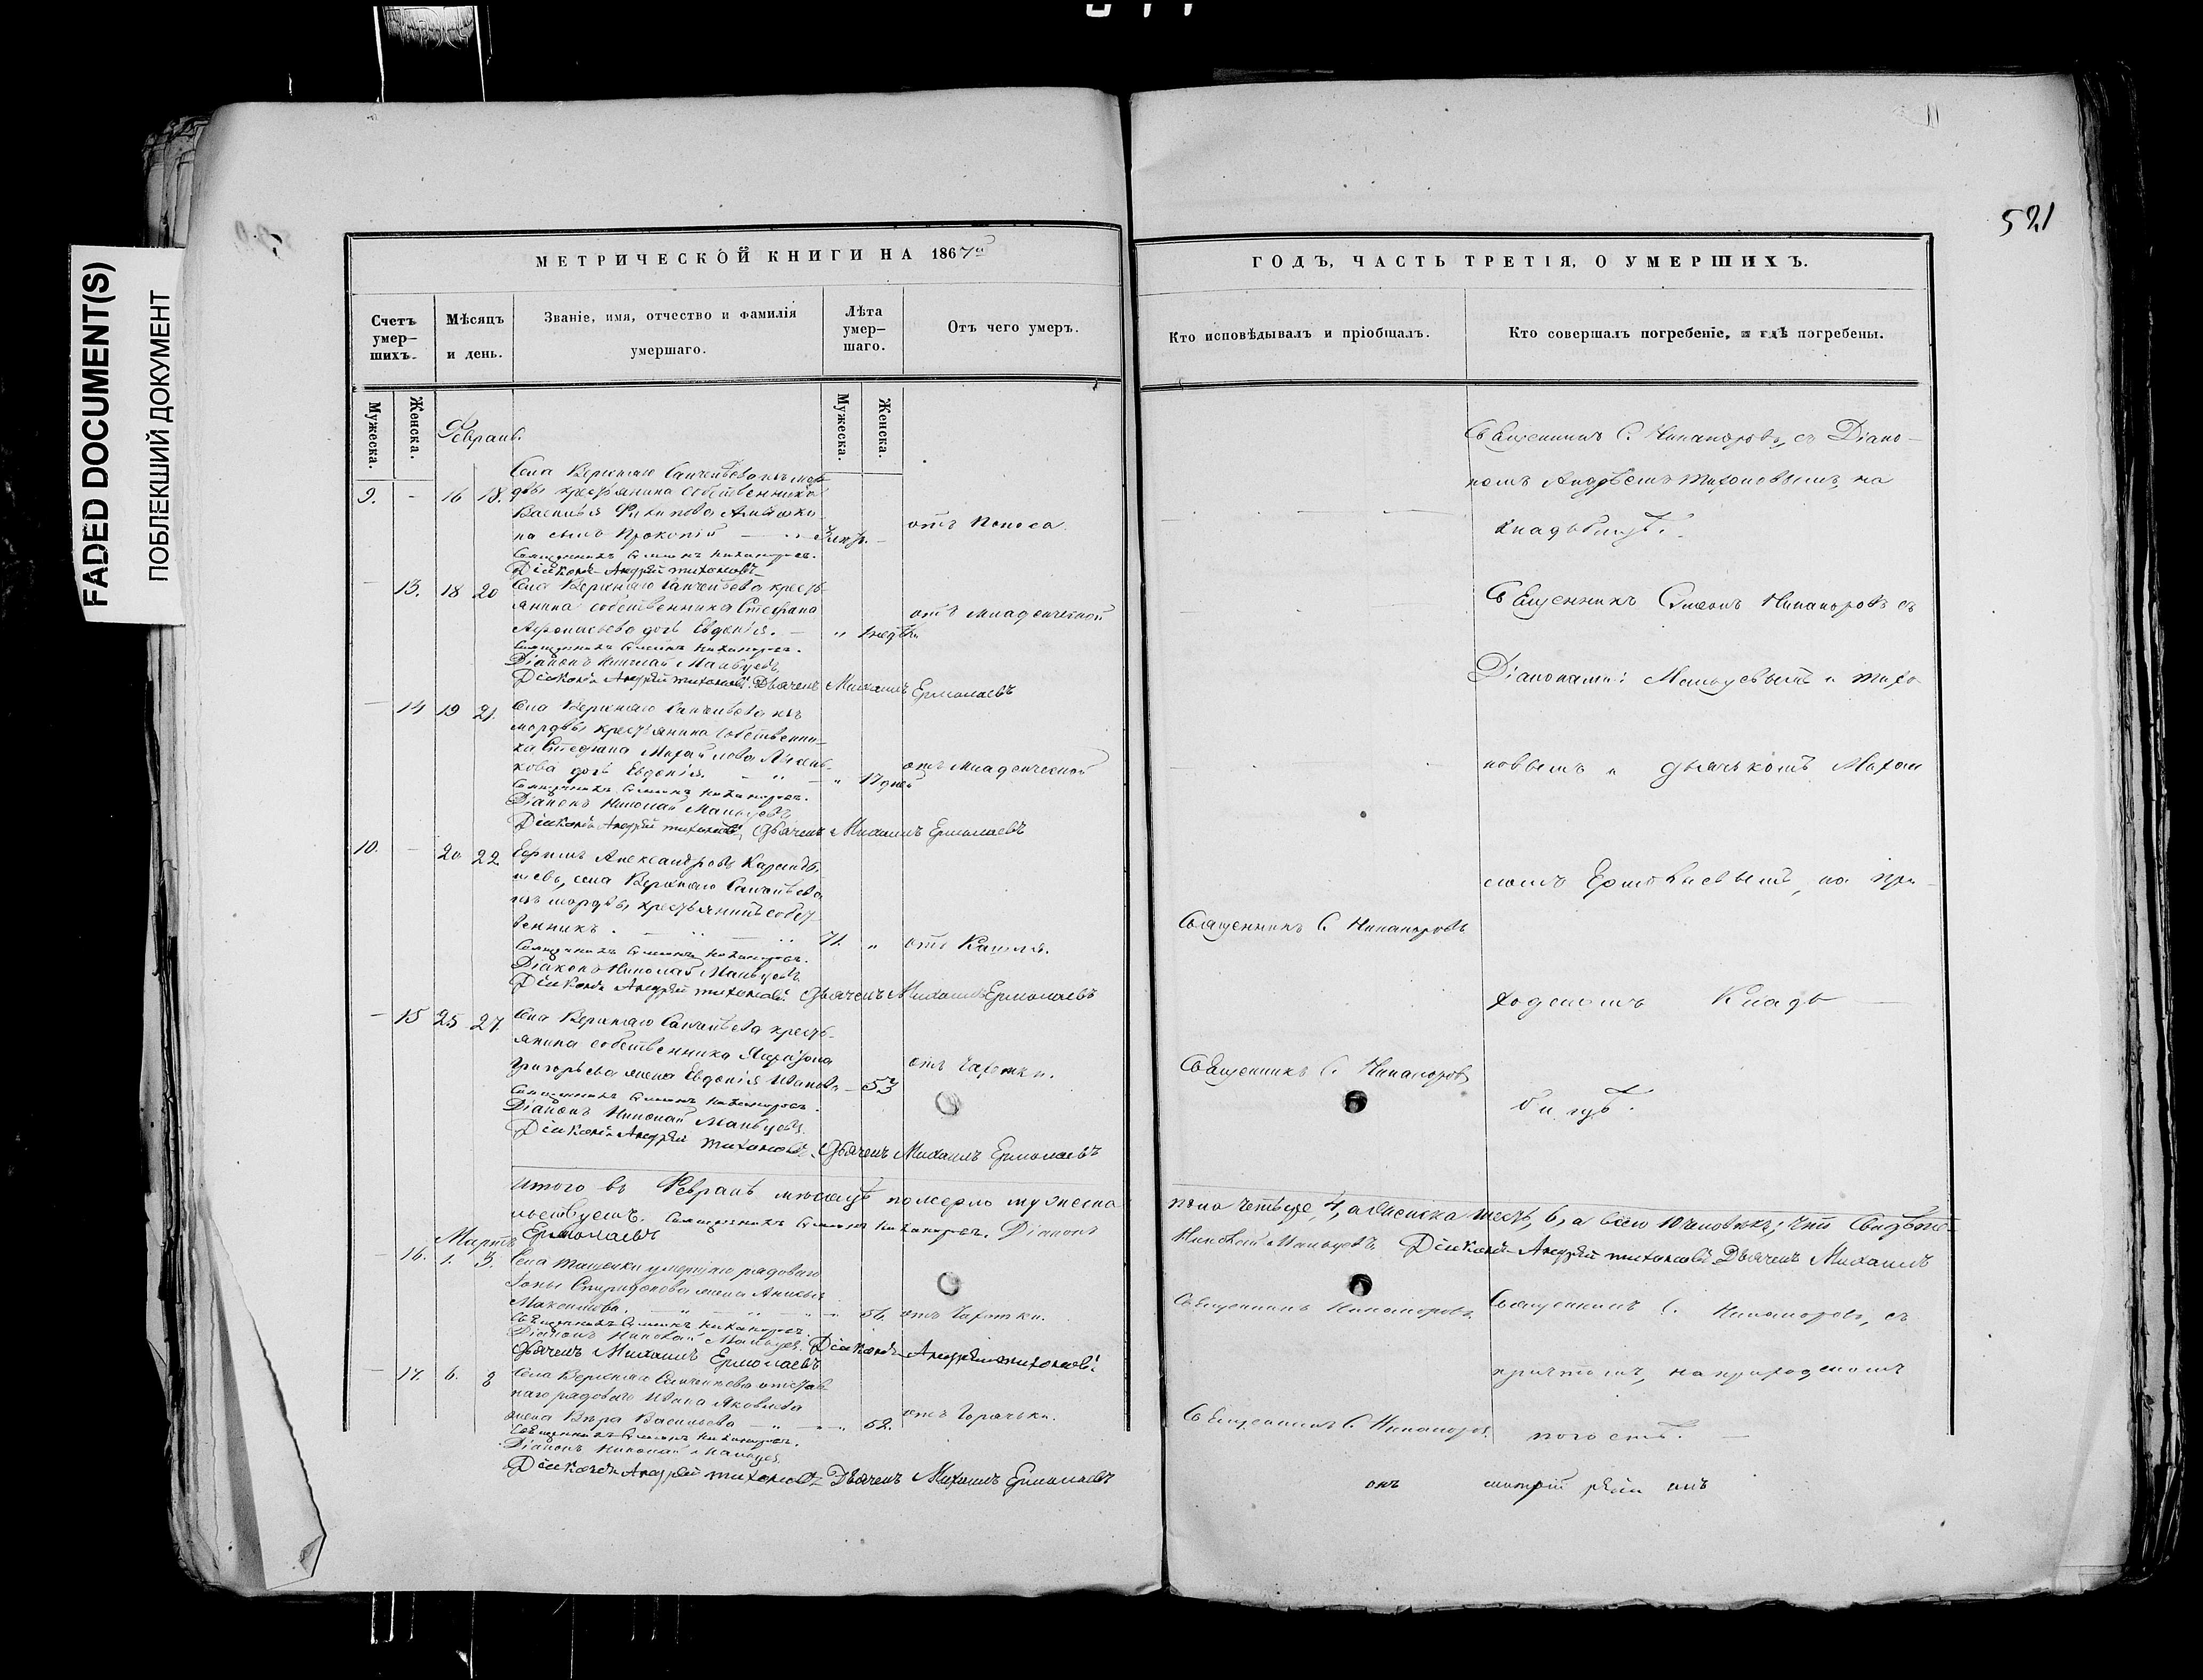 FADED DOCUMENT(S)
ПОБЛЕКШИЙ ДОКУМЕНТ
521
МЕТРИЧЕСКОЙ КНИГИ НА 1867й
Счетъ умер-шихъ.
Мѣсяцъ и день.
Званіе, имя, отчество и фамилія умершаго.
Лѣта умер-шаго.
Отъ чего умеръ.
Мужеска.
Женска.
Мужеска.
Женска.
Февраль.
9. - 16 18.
Села Верхняго
крестьянина собственника
Василья Филипова
на сынъ Прокопій
отъ поноса.
Священникъ Симеонъ Никаноровъ.
Діаконъ Андрей Тихоновъ
- 13. 18 20
Села Верхняго кресть-
янина собственника Стефана
дочь Евдокія. " 1 недѣли
отъ младенческой
Священникъ Симеонъ Никаноровъ.
Діаконъ Николай Мальцевъ
Діаконъ Андрей Тихоновъ. Дьячекъ Михаилъ Ермолаевъ
- 14 19 21.
Села Верхняго изъ
мордвы крестьянина собственни-
ка Стефана Михайлова
кова дочь Евдокія. " 17 дней
отъ младенческой
Священникъ Симеонъ Никаноровъ.
Діаконъ Николай Мальцевъ
Діаконъ Андрей Тихоновъ, Дьячекъ Михаилъ Ермолаевъ
10. - 20 22.
Александровъ
села Верхняго
изъ мордвы, крестьянинъ собст-
венникъ. 71. " отъ Кашля.
Священникъ Симеонъ Никаноровъ.
Діаконъ Николай Мальцевъ
Діаконъ Андрей Тихоновъ. Дьячекъ Михаилъ Ермолаевъ
- 15 25 27.
Села Верхняго кресть-
янина собственника
Григорьева жена Евдокія Иванова - 53
отъ Чахотки.
Священникъ Симеонъ Никаноровъ.
Діаконъ Николай Мальцевъ
Діаконъ Андрей Тихоновъ. Дьячекъ Михаилъ Ермолаевъ
Итого въ Февралѣ мѣсяцѣ померло мужеска
льствуетъ. Священникъ Симеонъ Никаноровъ. Діаконъ
Ермолаевъ
Мартъ
- 16. 1. 3.
Села умершаго рядоваго
Спиридонова жена
Максимова. 56. отъ Чахотки.
Священникъ Симеонъ Никаноровъ.
Діаконъ Николай Мальцевъ. Діаконъ Андрей Тихоновъ.
Дьячекъ Михаилъ Ермолаевъ
- 17. 6. 8
Села Верхняго отстав-
наго рядоваго Ивана Яковлева
жена Вѣра Васильева " 62. отъ Горячки.
Священникъ Симеонъ Никаноровъ.
Діаконъ Николай Мальцевъ
Діаконъ Андрей Тихоновъ Дьячекъ Михаилъ Ермолаевъ
ГОДЪ, ЧАСТЬ ТРЕТІЯ, О УМЕРШИХЪ.
Кто исповѣдывалъ и пріобщалъ.
Кто совершалъ погребеніе, и гдѣ погребены.
Священникъ С. Никаноровъ, съ Діако-
номъ Андреемъ Тихоновымъ, на
кладбищѣ.
Священникъ Симеонъ Никаноровъ съ
Діаконами: Мальцевымъ и Тихо
новымъ и дьячкомъ Михаи
ломъ Ермолаевымъ, на при-
ходскомъ Кладъ-
бищѣ.
Священникъ С. Никаноровъ
Священникъ С. Никаноровъ
пола четыре, 4, а женска шесть, 6, а всего 10 человѣкъ; что Свидѣте-
Николай Мальцевъ. Діаконъ Андрей Тихоновъ. Дьячекъ Михаилъ
Священникъ Никаноровъ.
Священникъ С. Никаноровъ, съ
причтомъ, на приходскомъ
погостѣ.
Священникъ С. Никаноровъ.